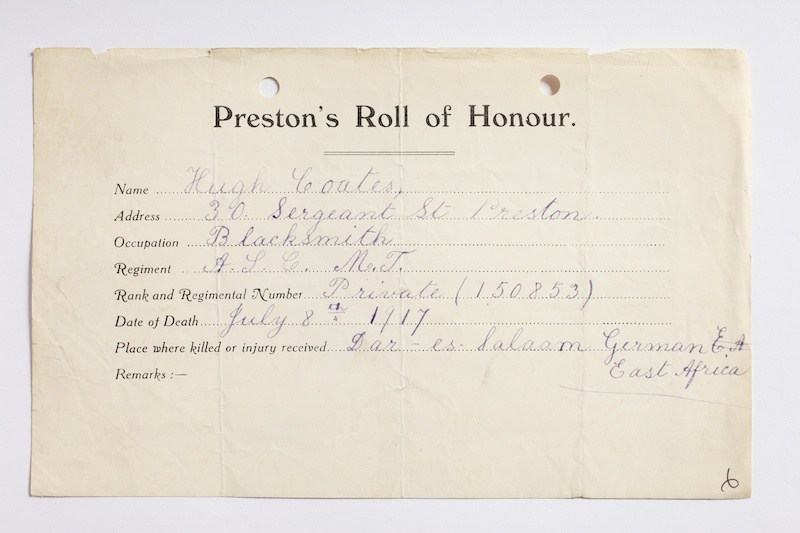 Preston's Roll of Honour.
Name Hugh Coates.
Address 30. Sergeant St Preston.
Occupation Blacksmith
Regiment A. S. C. M.T.
Rank and Regimental Number Private (150853)
Date of Death July 8th 1917
Place where killed or injury received Dar-es-Salaam German E. A
East Africa
Remarks :—
6